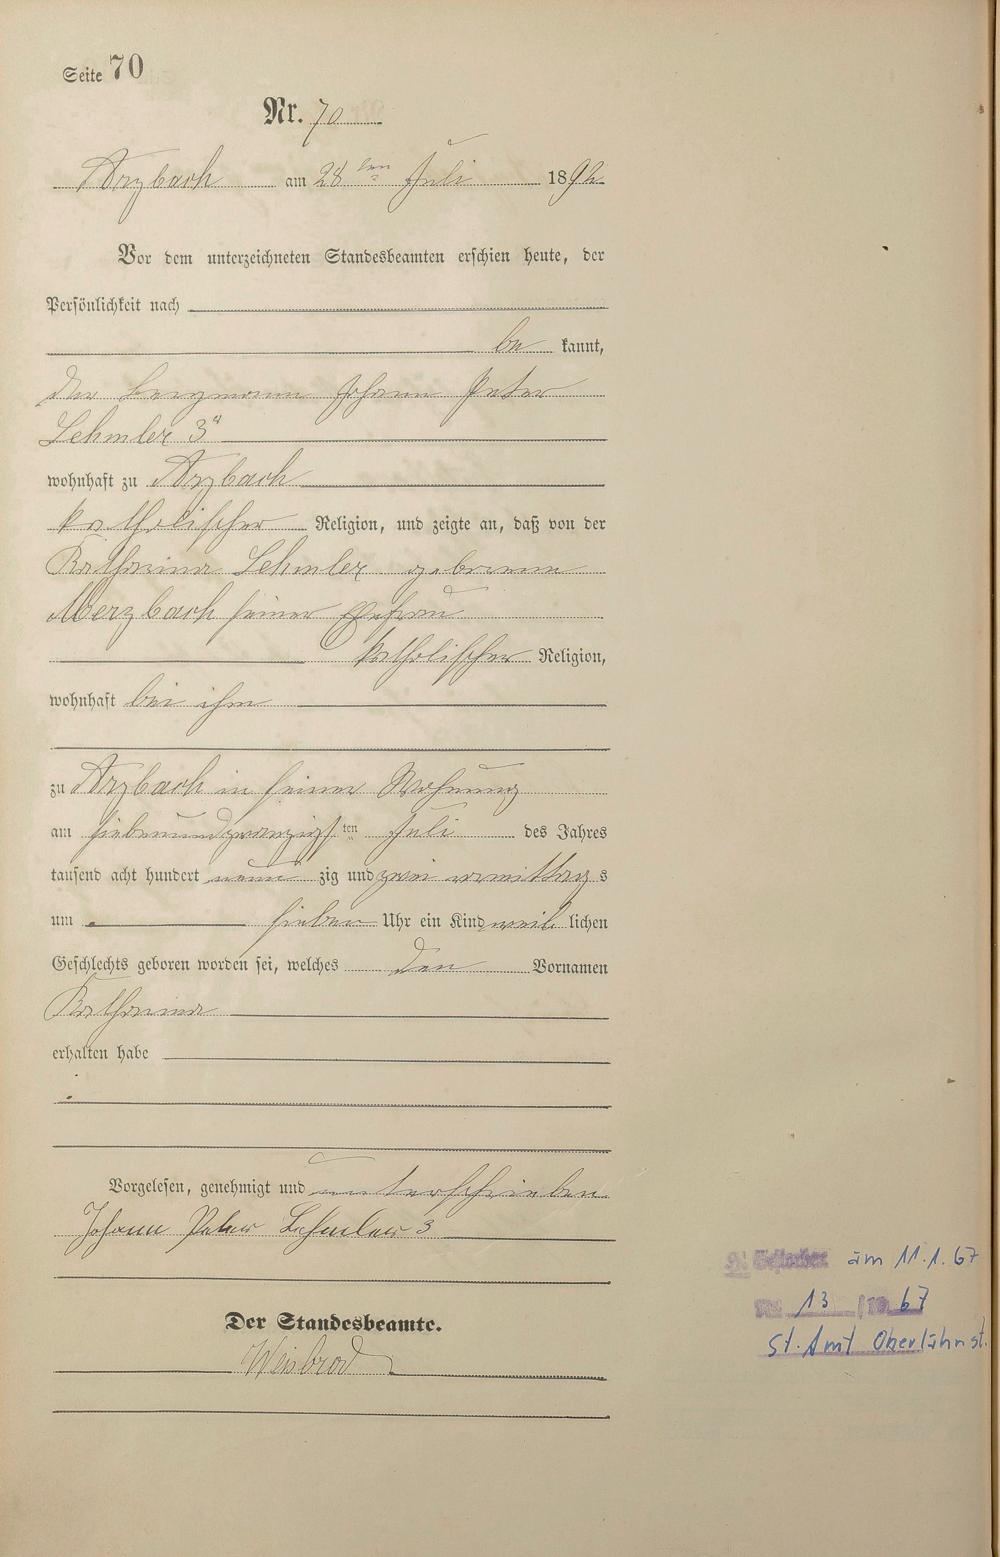 Seite 70
Nr. 70
Arzbach am 28 ten Juli 1892
Vor dem unterzeichneten Standesbeamten erschien heute, der
Persönlichkeit nach
be kannt,
der Bergmann Johann Peter
Lehmler 3r
wohnhaft zu Arzbach
katholischer Religion, und zeigte an, daß von der
Katharina Lehmler geborene
Merzbach seiner Ehefrau
katholischer Religion,
wohnhaft bei ihm
zu Arzbach in seiner Wohnung
am siebenundzwanzigsten Juli des Jahres
tausend acht hundert neun zig und zwei vormittags
um sieben Uhr ein Kind weib lichen
Geschlechts geboren worden sei, welches den Vornamen
Katharina
erhalten habe
Vorgelesen, genehmigt und unterschrieben
Johann Peter Lehmler 3
Der Standesbeamte.
Weisbrod
Gestorben am 11.1.67
Nr. 13 /19 67
St. Amt Oberlahnst.